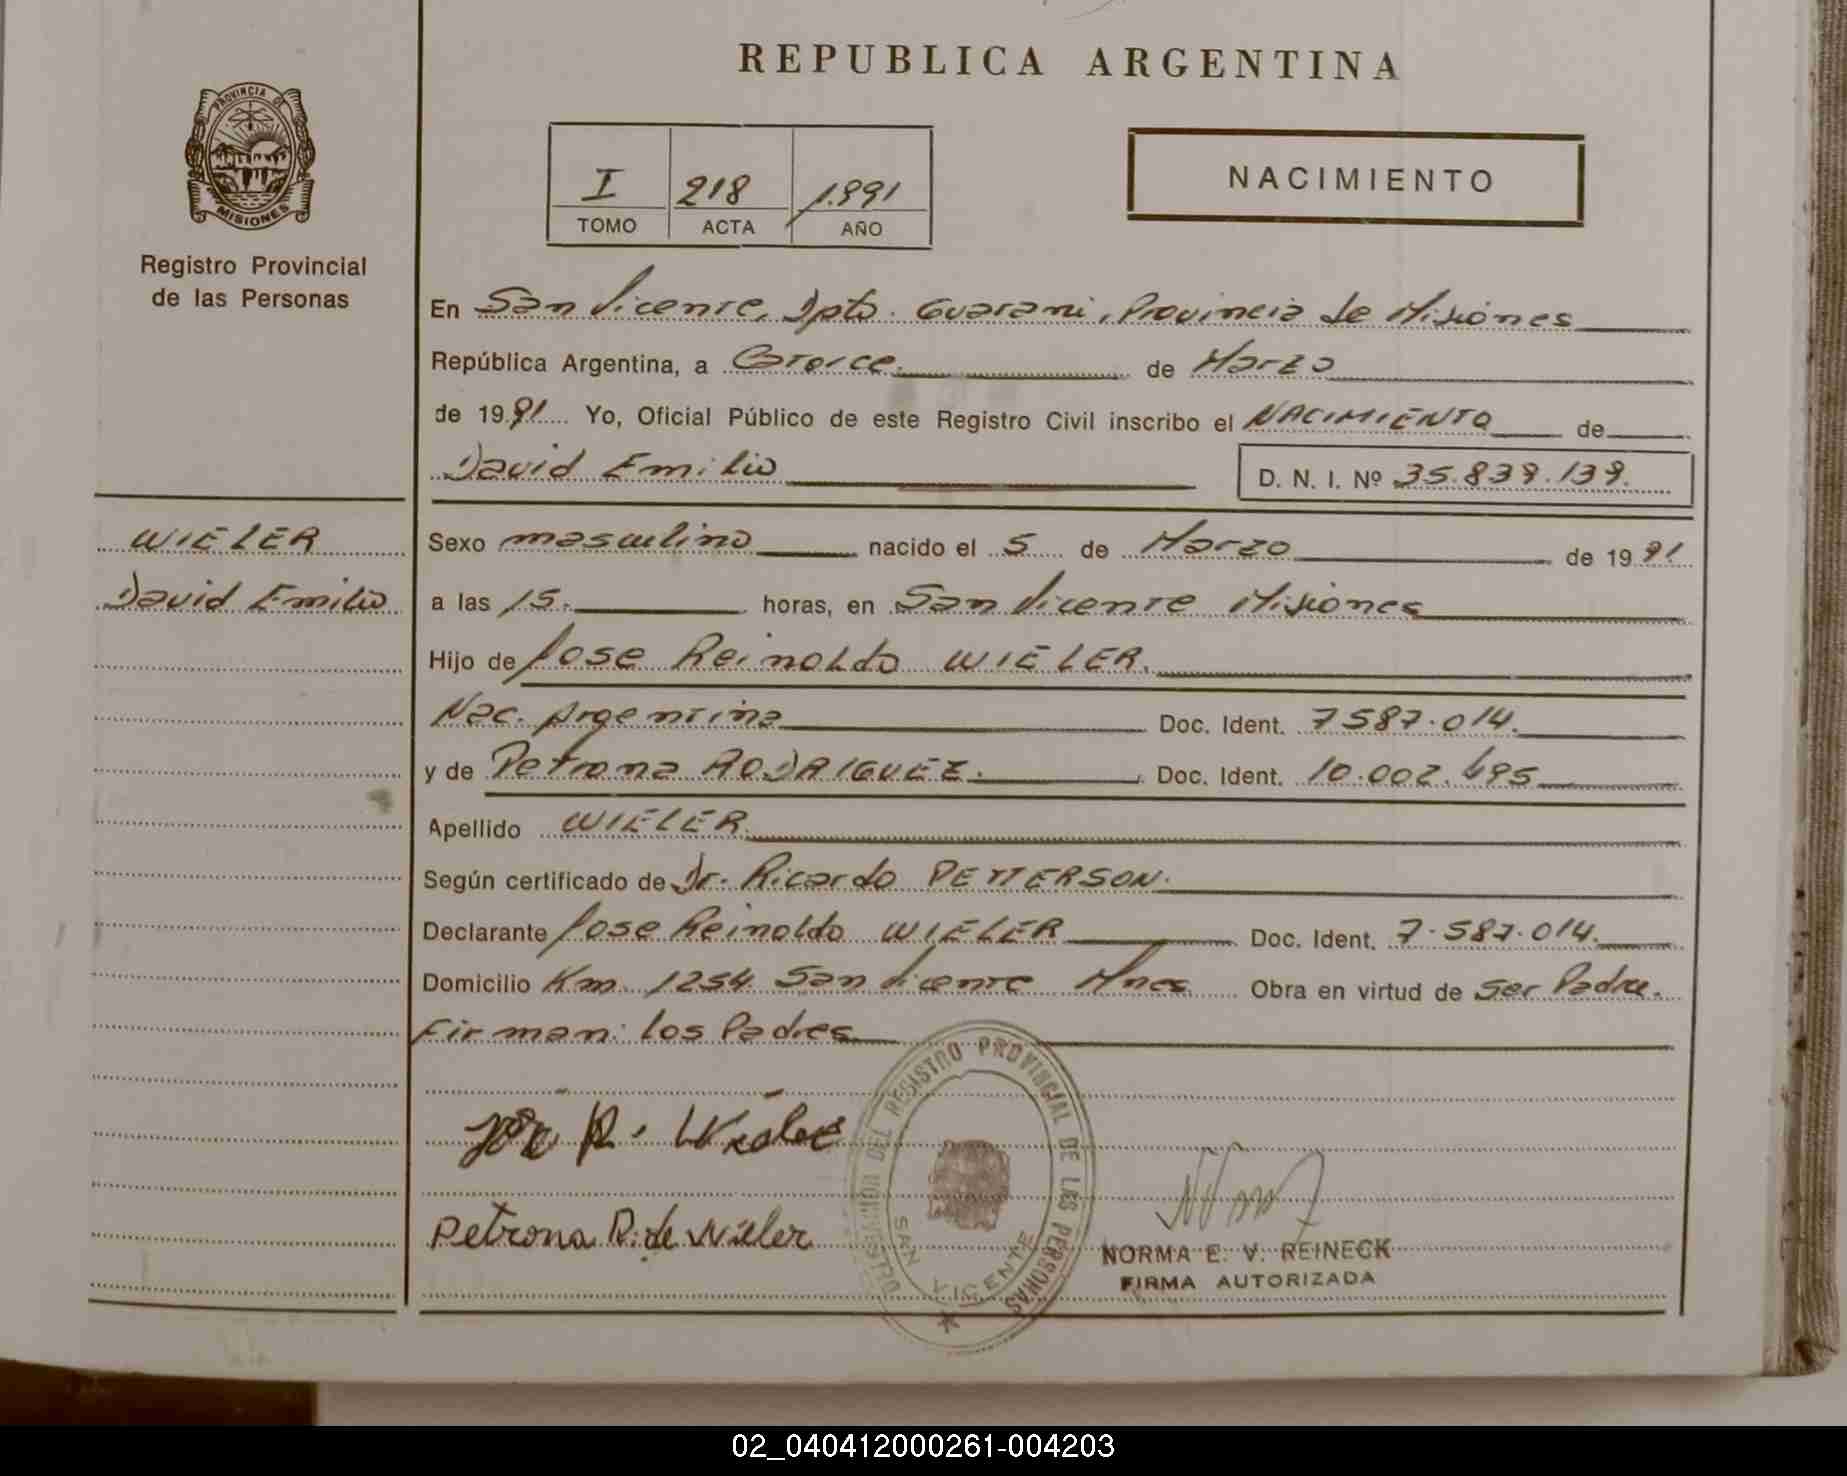 REPUBLICA ARGENTINA
PROVINCIA DE
MISIONES
Registro Provincial
de las Personas
I 218 1.991
TOMO ACTA AÑO
NACIMIENTO
En San Vicente, Dpto. Guarani, Provincia de Misiones
República Argentina, a Catorce de Marzo
de 1991 Yo, Oficial Público de este Registro Civil inscribo el NACIMIENTO de
David Emilio D. N. I. Nº 35.839.139.
WIELER
David Emilio
Sexo masculino nacido el 5 de Marzo de 1991
a las 15. horas, en San Vicente Misiones
Hijo de Jose Reinoldo WIELER.
Nac. Argentina Doc. Ident. 7587.014.
y de Petrona RODRIGUEZ. Doc. Ident. 10.002.495
Apellido WIELER
Según certificado de Dr. Ricardo PETTERSON.
Declarante Jose Reinoldo WIELER Doc. Ident. 7.587.014.
Domicilio Km. 1254 San Vicente Mnes Obra en virtud de ser Padre.
Firman: los Padres
José R. Wieler
Petrona R. de Wieler
DELEGACION DEL REGISTRO PROVINCIAL DE LAS PERSONAS
SAN VICENTE
NORMA E. V. REINECK
FIRMA AUTORIZADA
02_040412000261-004203